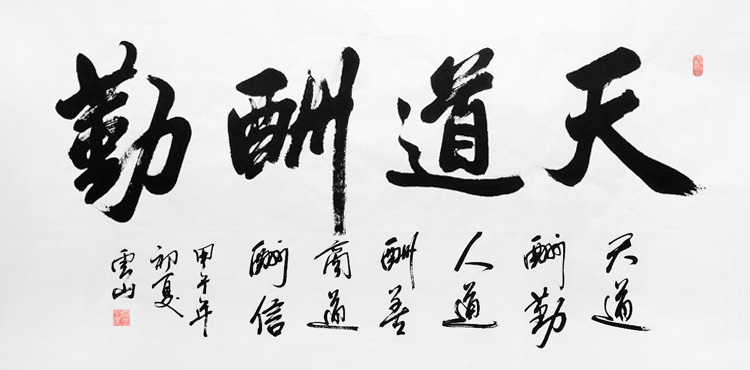 天道酬勤
天道
酬勤
人道
酬善
商道
酬信
甲午年
初夏
雲山